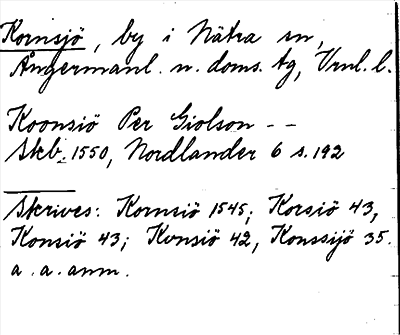 Kornsjö, by i Nätra sn,
Ångermanl. n. doms. tg, Vnl. l.
Koonsiö Per Giolson - -
Skb. 1550, Nordlander 6 s. 192
Skrives: Kornsiö 1545; Korsiö 43,
Konsiö 43; Konsiö 42, Konssijö 35.
a. a. anm.